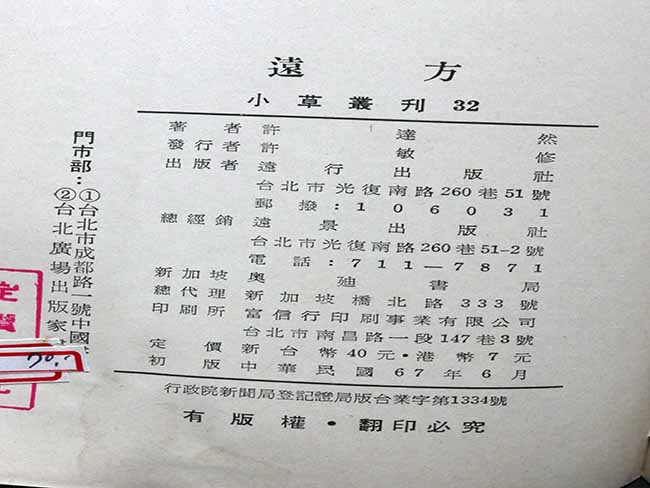 遠方
小草叢刊 32
著者 許達然
發行者 許敏修
出版者 遠行出版社
台北市光復南路260巷51號
郵撥：106031
總經銷 遠景出版社
台北市光復南路260巷51-2號
電話：711—7871
新加坡 奧廸書局
總代理 新加坡橋北路333號
印刷所 富信行印刷事業有限公司
台北市南昌路一段147巷3號
定價 新台幣40元·港幣7元
初版 中華民國67年6月
行政院新聞局登記證局版台業字第1334號
有版權·翻印必究
門市部：①台北市成都路一號中國
②台北廣場出版家
定
70.